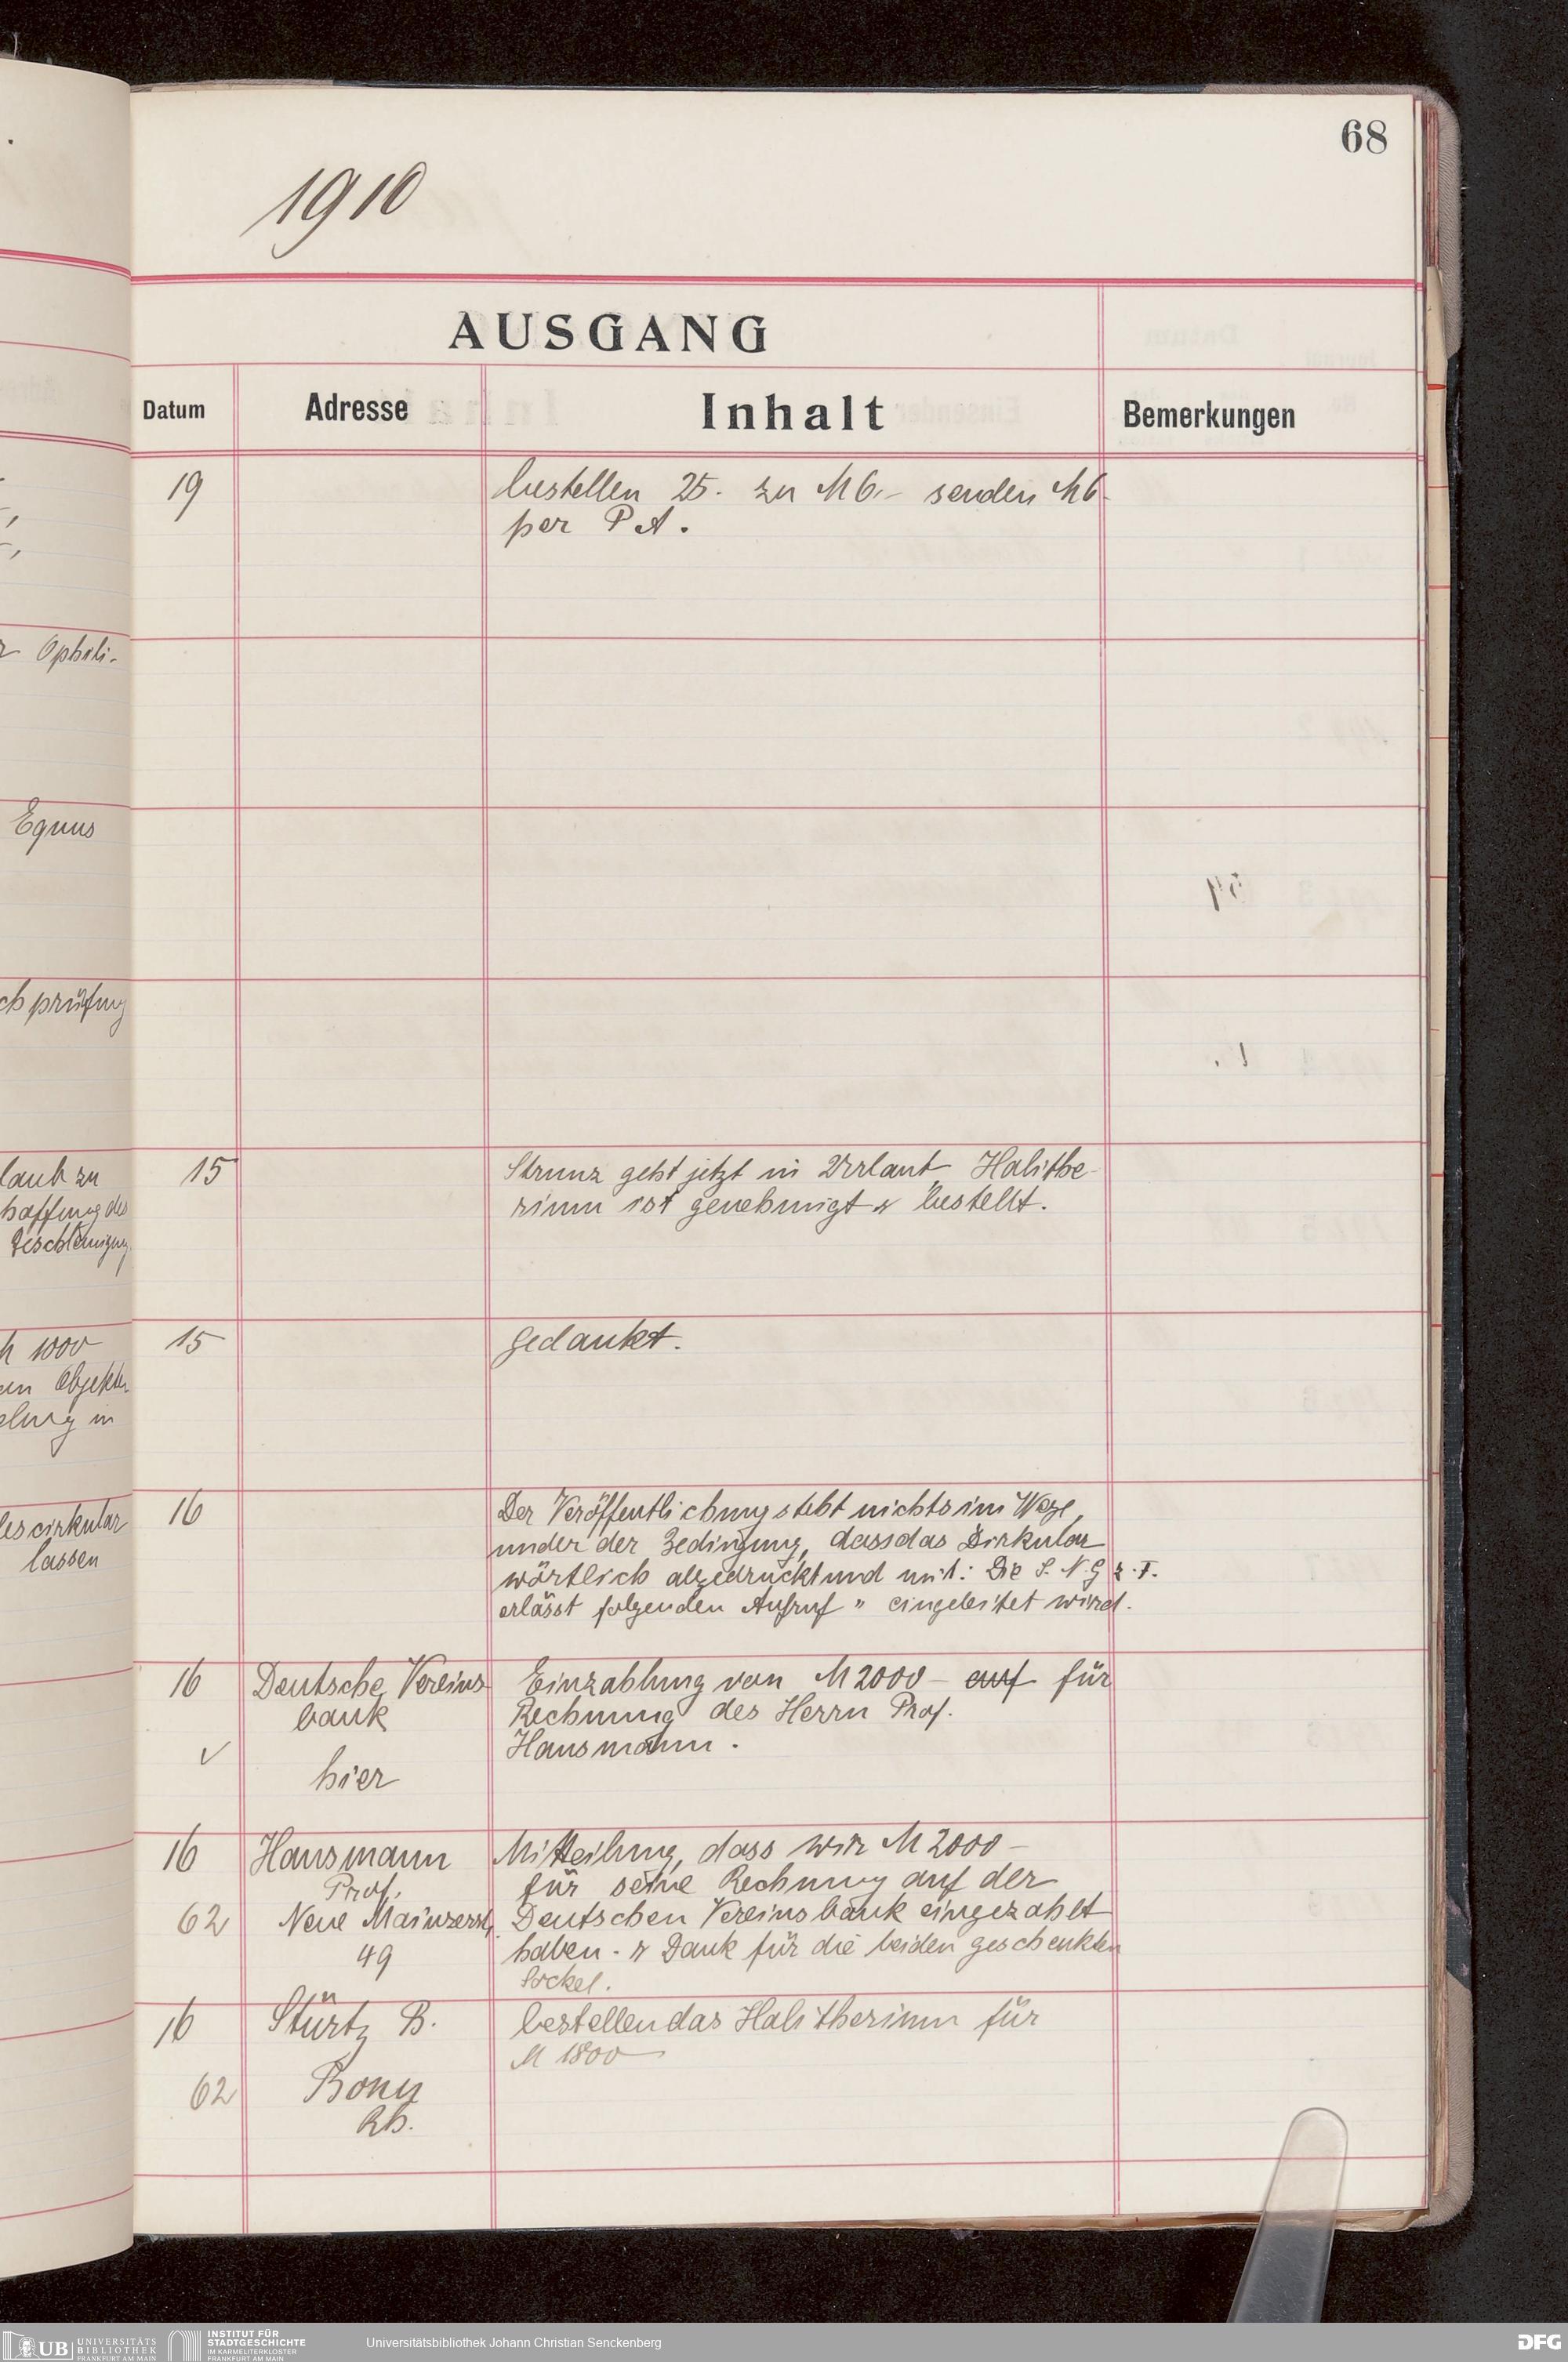 68
1910
AUSGANG
Datum Adresse Inhalt Bemerkungen
19 bestellen 25. zu M 6.- senden M 6
per P A.
r Ophili-
Equus
ch prüfung
laub zu
haffung des
Beschleunigung
15 Strunz geht jetzt in Urlaub Halithe-
rium ist genehmigt & bestellt.
h 1000
en Objekte
elung in
15 gedankt.
les cirkular
lassen
16 Der Veröffentlichung steht nichts im Wege,
under der Bedingung, dass das Zirkular
wörtlich abgedruckt und mit: Die S. N. G z. F.
erlässt folgenden Aufruf " eingeleitet wird.
16 Deutsche Vereins Einzahlung von M 2000 – auf für
bank Rechnung des Herrn Prof.
Hausmann.
hier
16 Hausmann Mitteilung, dass wir M 2000 –
Prof. für seine Rechnung auf der
62 Neue Mainzerst. Deutschen Vereinsbank eingezahlt
49 haben. & Dank für die beiden geschenkten
Sockel.
16 Stürtz B. bestellen das Halitherium für
M 1800 –
62 Bonn
Rh.
UB UNIVERSITÄTS
BIBLIOTHEK
FRANKFURT AM MAIN
INSTITUT FÜR
STADTGESCHICHTE
IM KARMELITERKLOSTER
FRANKFURT AM MAIN
Universitätsbibliothek Johann Christian Senckenberg
DFG